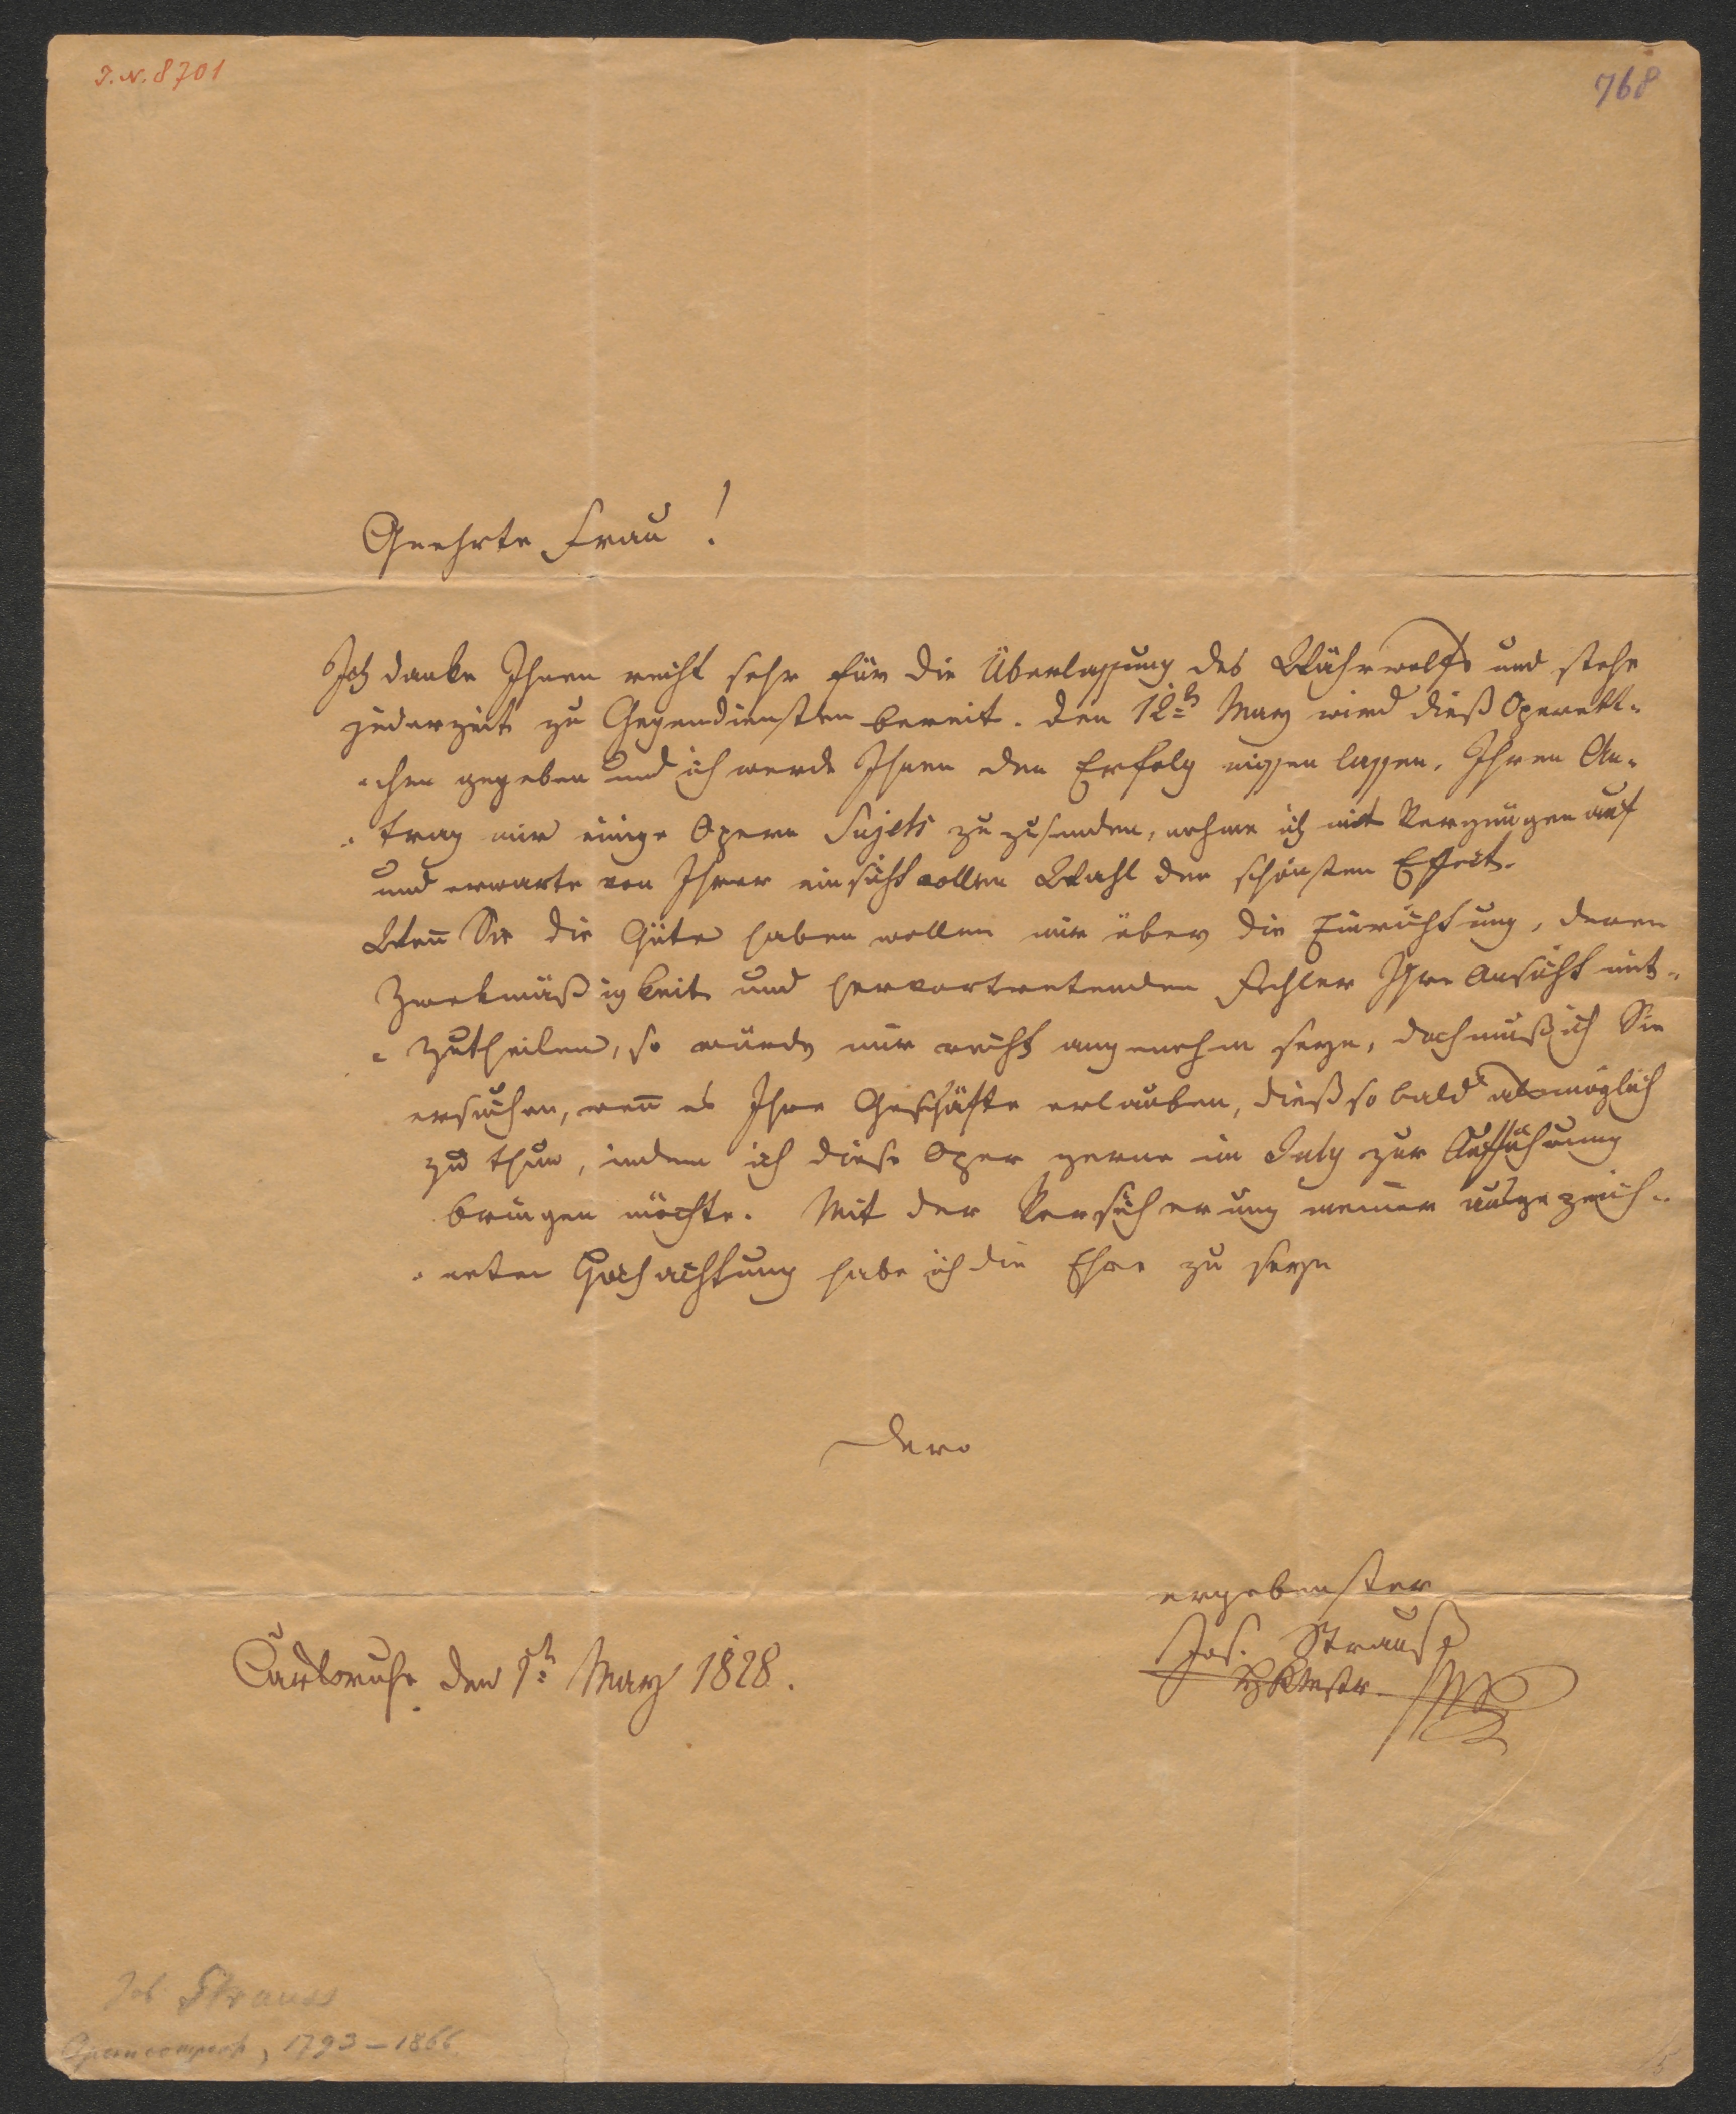 I. N. 8701
768
Geehrte Frau!
Ich danke Ihnen recht sehr für die Überlassung des Währwolfs und stehe
jederzeit zu Gegendiensten bereit. Den 12n May wird dieß Operett-
-chen gegeben und ich werde Ihnen den Erfolg wissen lassen. Ihren An-
-trag mir einige Opern Sujets zu zusenden, nehme ich mit Vergnügen auf
und erwarte von Ihrer einsichtvollen Wahl den schönsten Effect.
Wenn Sie die Güte haben wollen mir über die Einrichtung, deren
Zwekmäßigkeit und hervortretenden Fehler Ihre Ansicht mit-
-zutheilen, so würde mir recht angenehm seyn, doch muß ich Sie
ersuchen, wenn es Ihre Geschäfte erlauben, dieß so bald als möglich
zu thun, indem ich diese Oper gerne im July zur Aufführung
bringen möchte. Mit der Versicherung meiner ausgezeich-
-neten Hochachtung habe ich die Ehre zu seyn
Dero
ergebenster
Jos. Strauß
HKMstr.
Carlsruhe den 1n May 1828.
Jos. Strauss
Operncompost, 1793-1866.
5